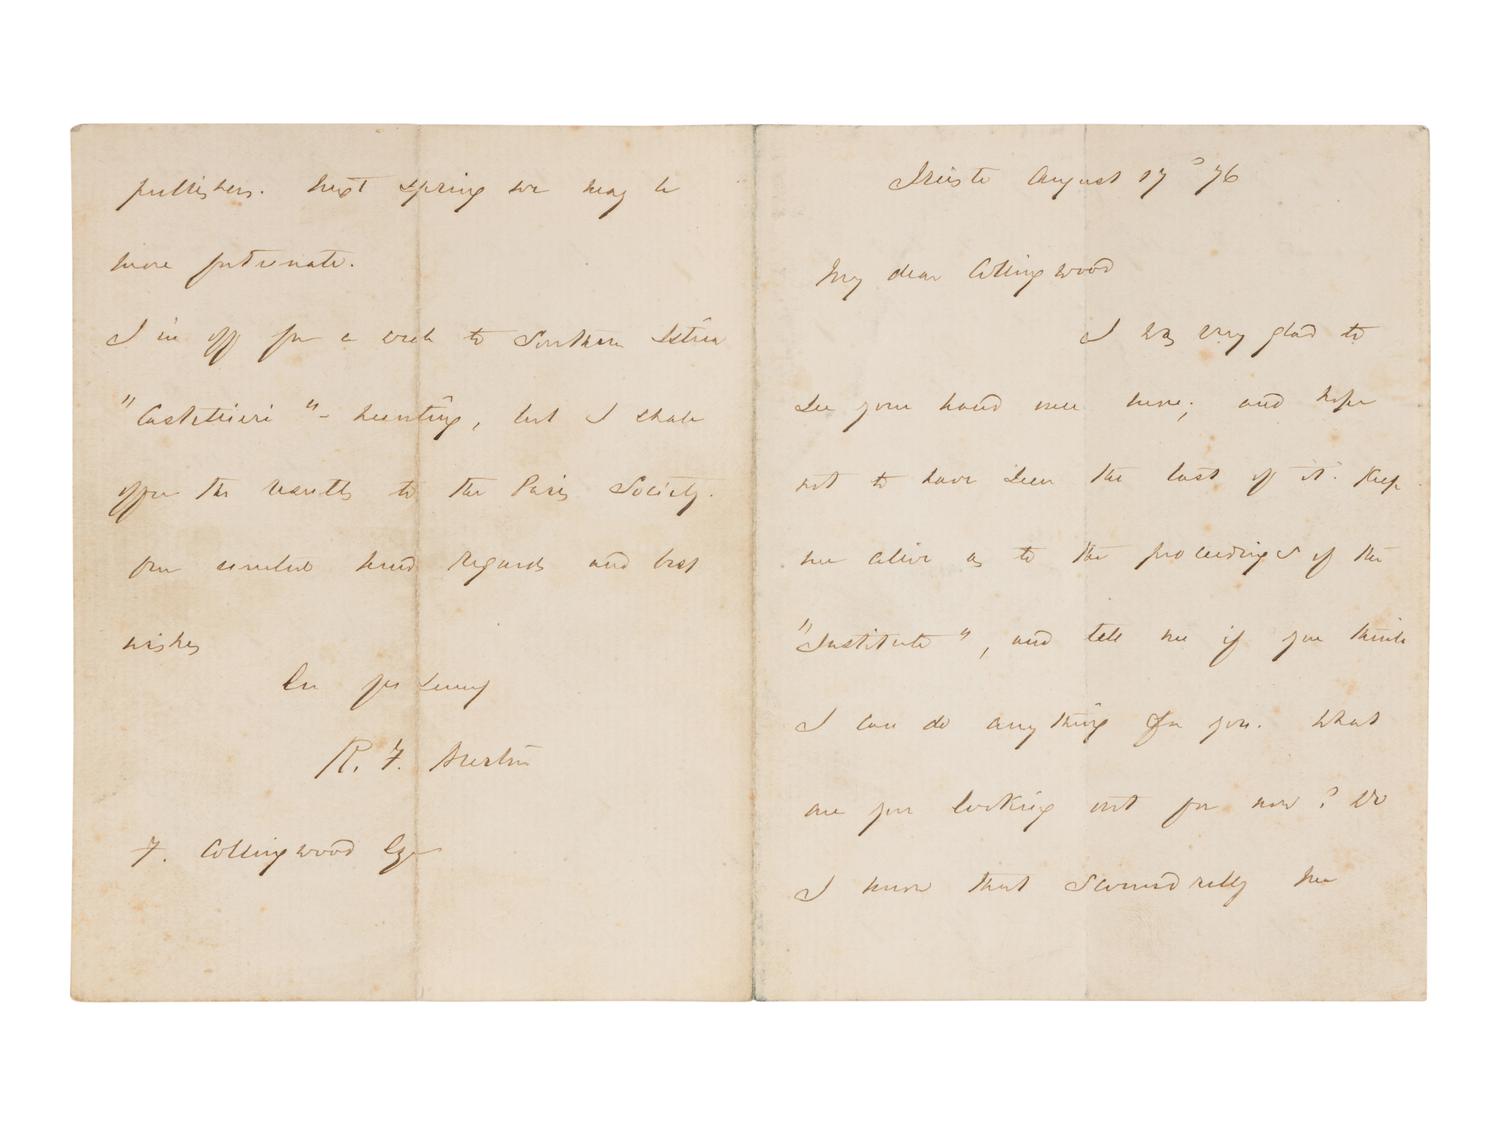 Trieste August 17 '76
My dear Collingwood
I was very glad to
see your hand once more; and hope
not to have seen the last of it. Keep
me alive as to the proceedings of the
"Institute", and tell me if you think
I can do anything for you. What
are you looking out for now? Do
I know that scoundrelly
publishers. Next spring we may be
more fortunate.
I'm off for a week to Southern Istria
"Castellieri" - hunting, but I shall
offer the results to the Paris Society.
Our united kind regards and best
wishes
Ever yrs sincly
R. F. Burton
F. Collingwood Esqr